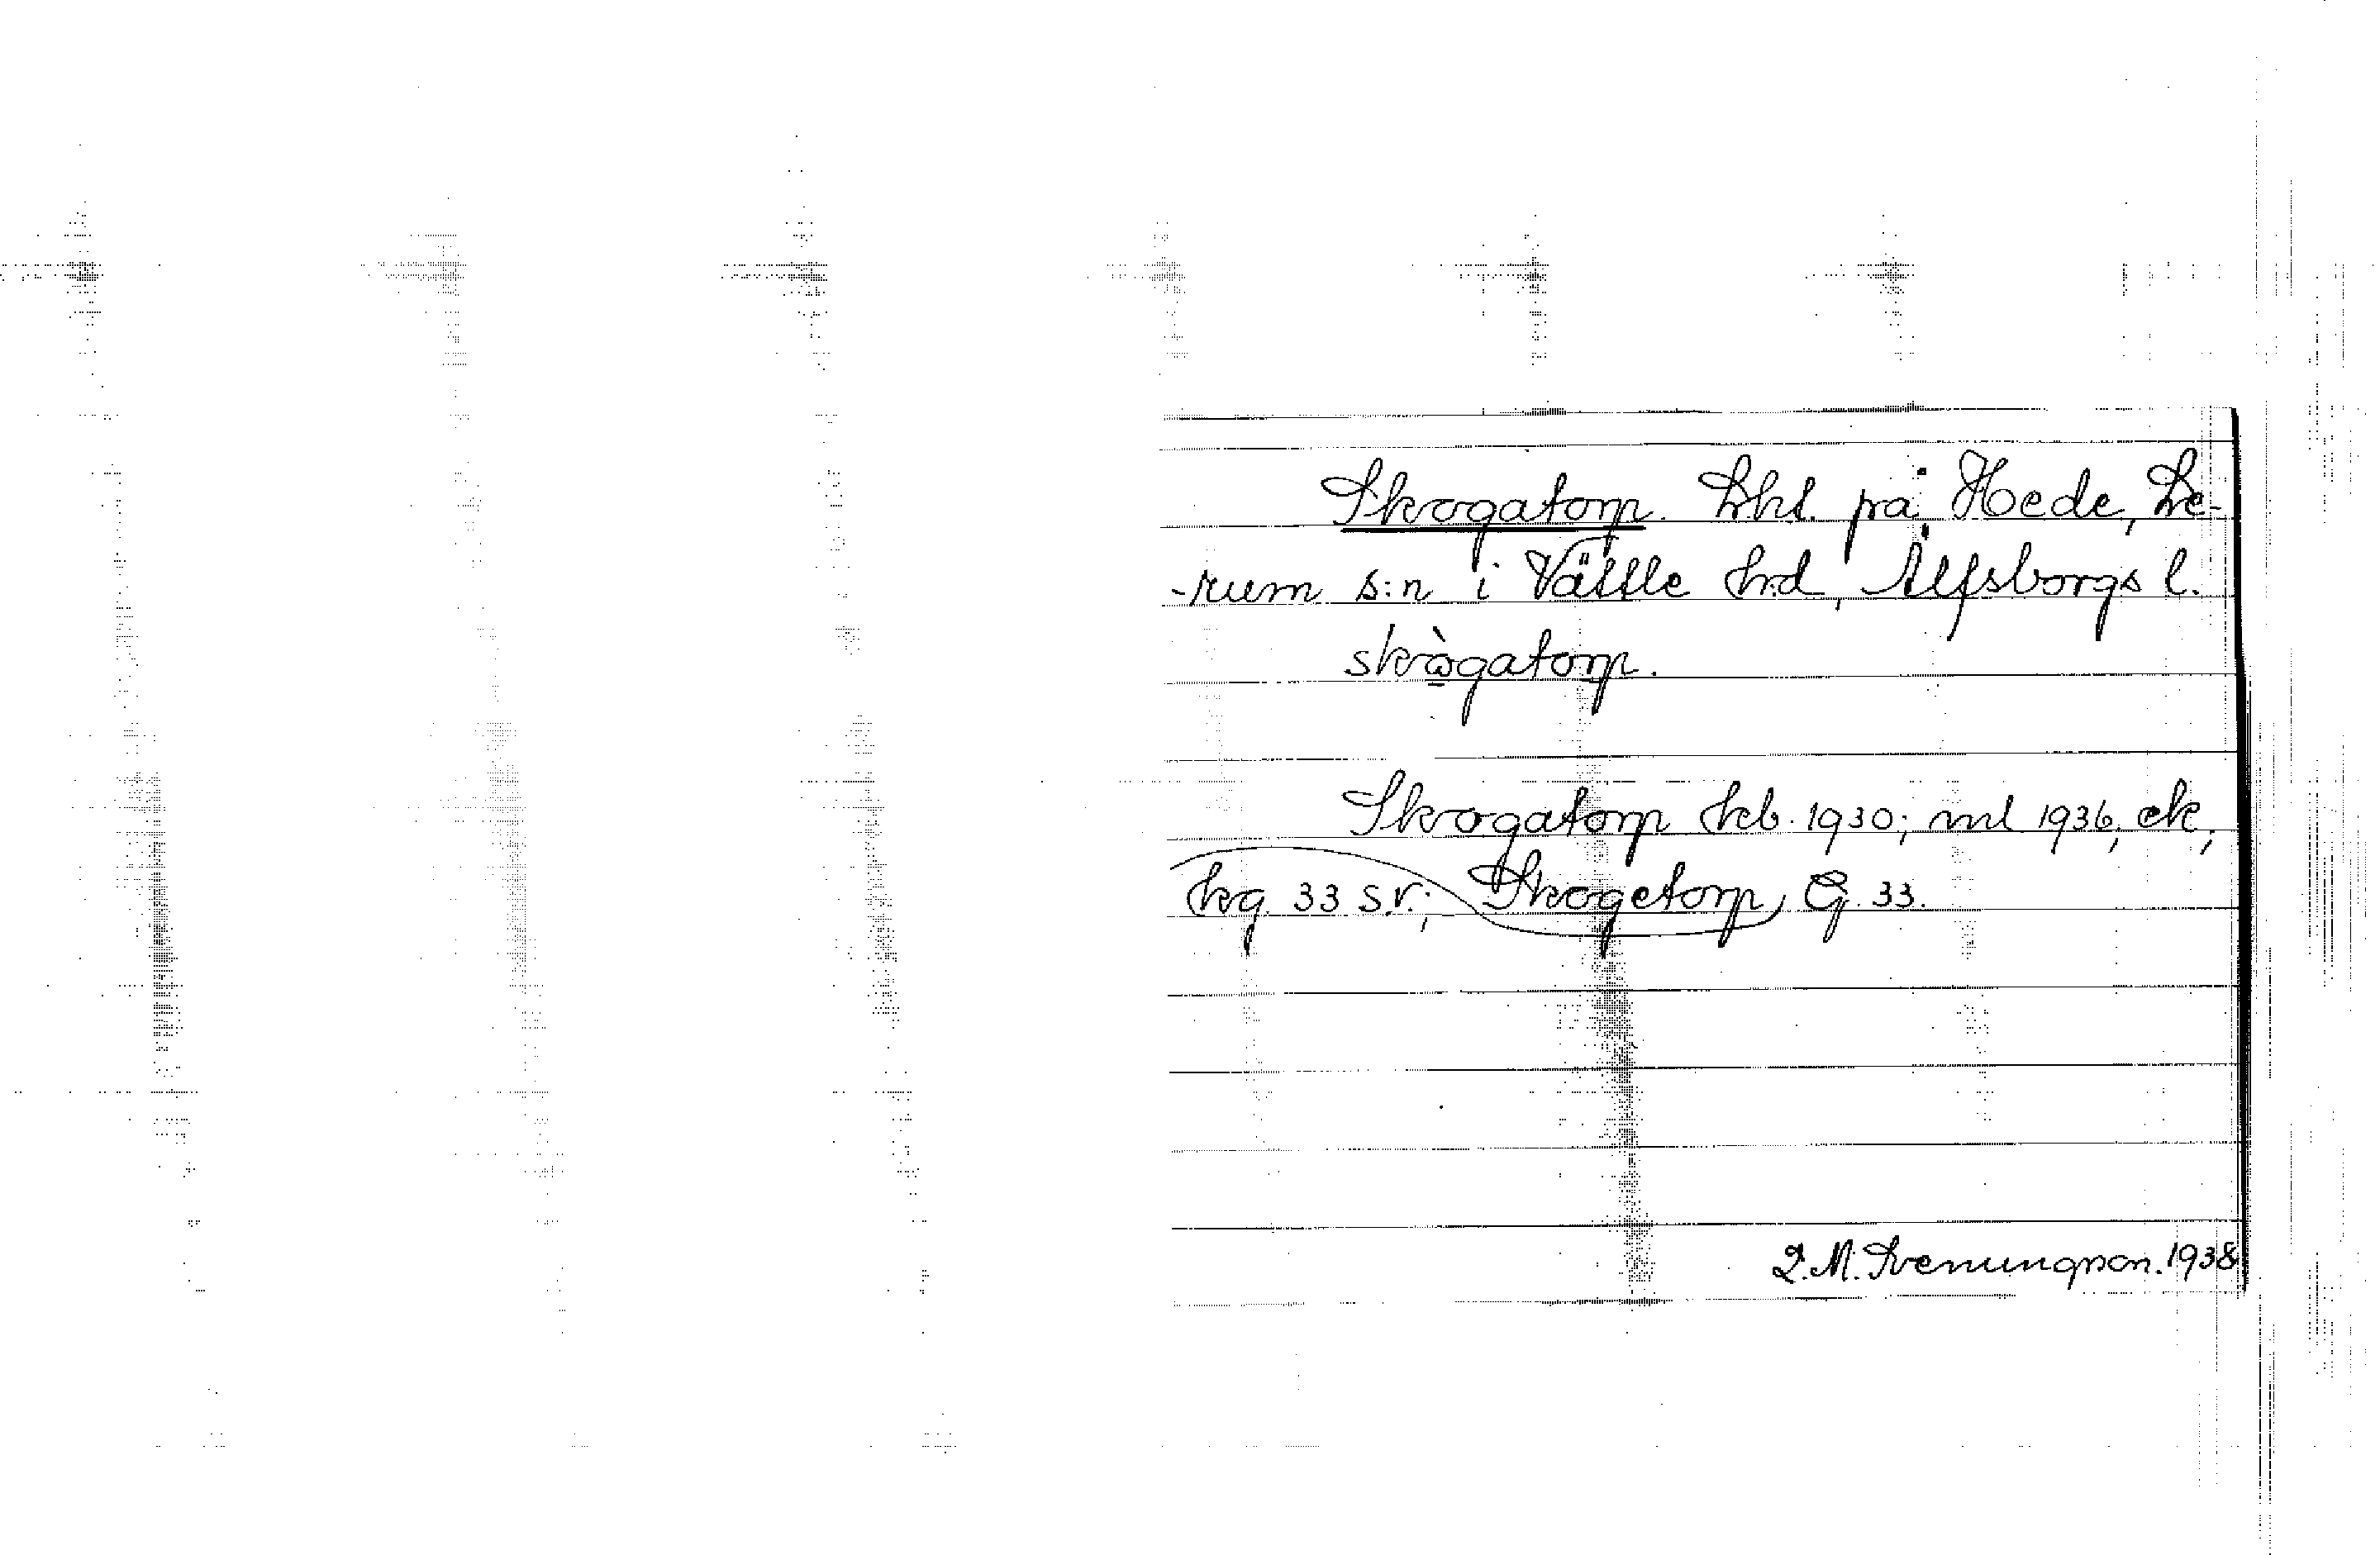 Skogatorp. Lht. på Hede, Le-
-rum s:n i Vättle hd, Älfsborgs l.
skògatorp.
Skogatorp hb. 1930; ml 1936, ek,
hg. 33 s.v.; Skogetorp, G. 33.
D. M. Svenungsson. 1938